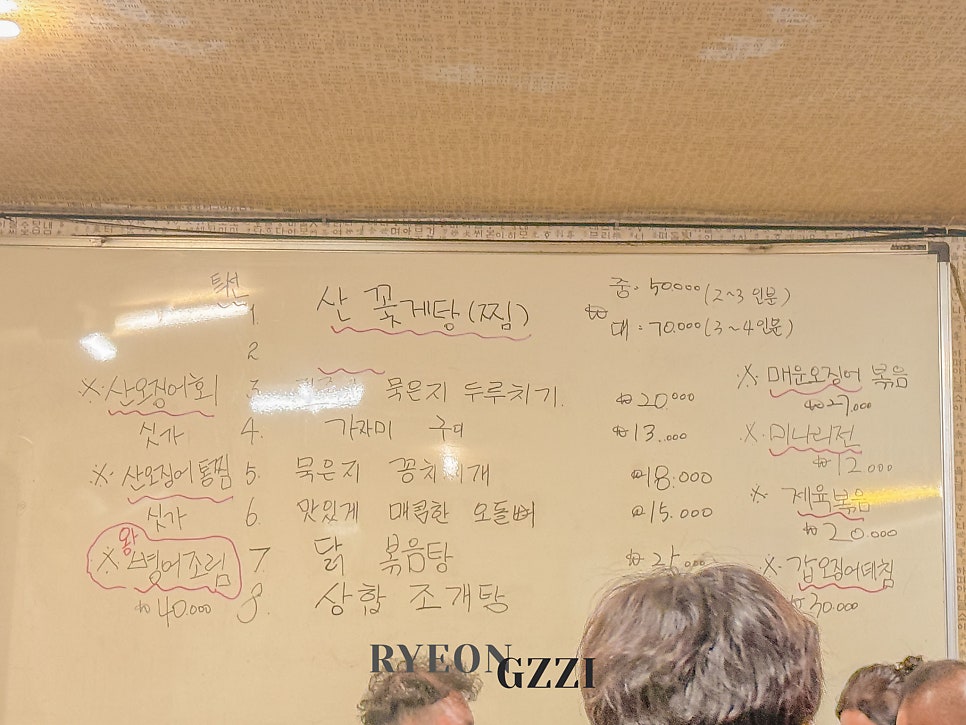 특선
1. 산 꽃게탕(찜) ₩ 중. 50000 (2~3인분)
대 : 70.000 (3~4인분)
2
3. 묵은지 두루치기. ₩20.000
4. 가자미 구이 ₩13.000
5. 묵은지 꽁치찌개 ₩18.000
6. 맛있게 매콤한 오돌뼈 ₩15.000
7. 닭 볶음탕
8. 상합 조개탕
※. 산오징어회
싯가
※. 산오징어통찜
싯가
※ 왕 병어조림
₩40.000
※. 매운오징어 볶음
₩27.000
※. 미나리전
₩12.000
※. 제육볶음
₩20.000
※. 갑오징어데침
₩30.000
RYEON
GZZI